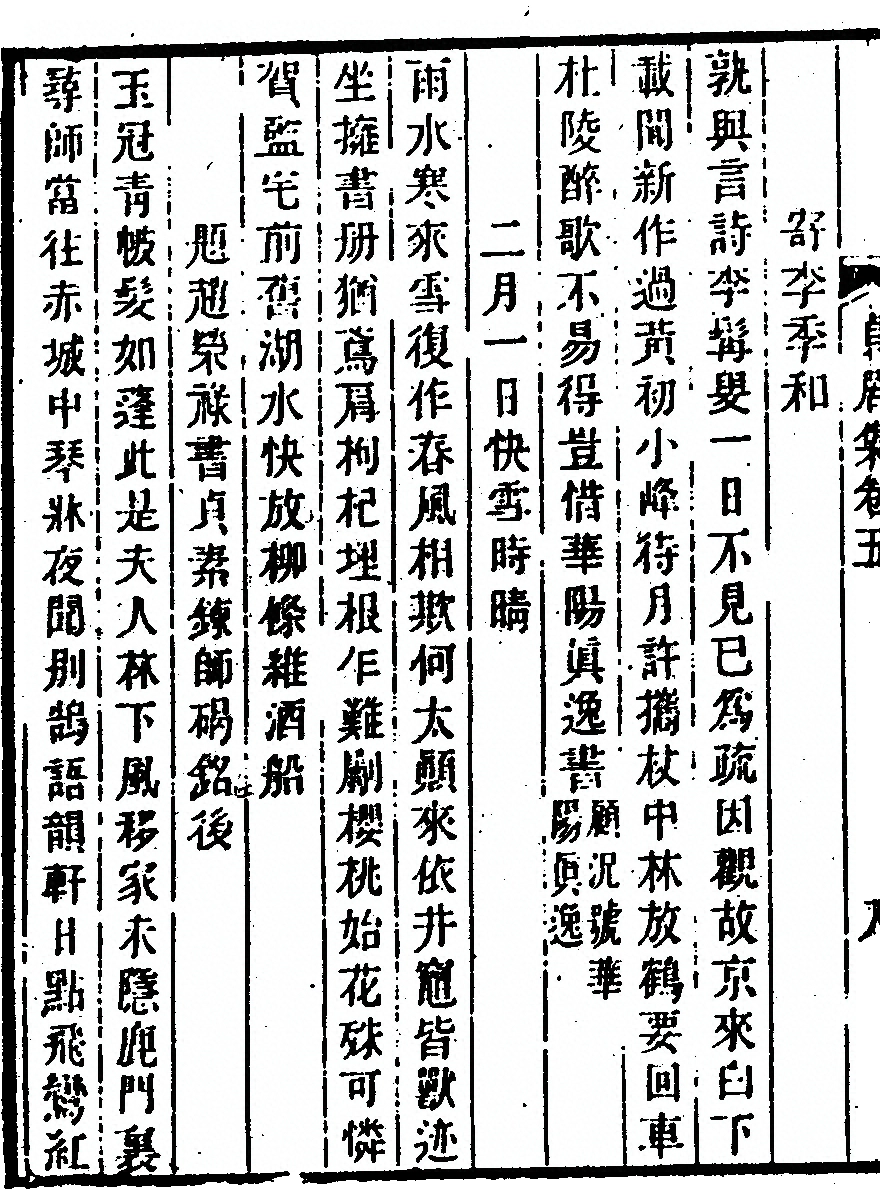 貞居集卷五
八
寄李季和
孰與言詩李髯叟一日不見已爲疏因觀故京來臼下
載間新作過黃初小峰待月許攜杖中林放鶴要回車
杜陵醉歌不易得豈惜華陽眞逸書顧況號華陽眞逸
二月一日快雪時晴
雨水寒來雪復作春風相欺何太顛來依井竈皆獸迹
坐擁書册猶鳶肩枸杞埋根乍難斸櫻桃始花殊可憐
賀監宅前舊湖水快放柳條維酒船
題趙榮祿書貞素鍊師碣銘後
玉冠青帔髮如蓬此是夫人林下風移家未隱鹿門裏
尋師當往赤城中琴牀夜聞別鵠語韻軒日點飛鸞紅